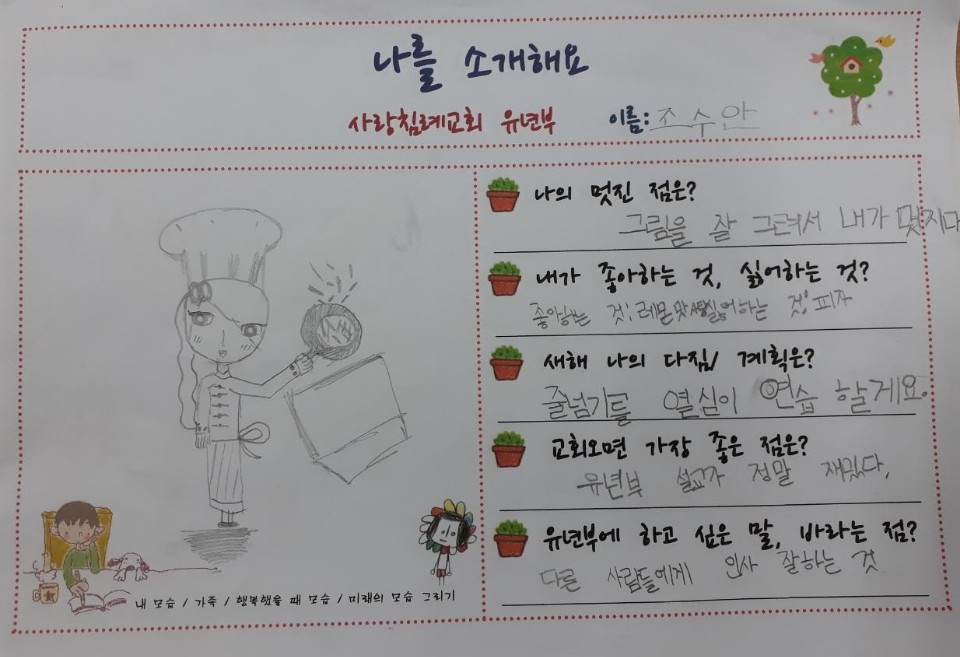 나를 소개해요
사랑침례교회 유년부 이름: 조수안
나의 멋진 점은?
그림을 잘 그려서 내가 멋지다
내가 좋아하는 것, 싫어하는 것?
좋아하는 것: 레몬맛 싫어하는 것: 피자
새해 나의 다짐/ 계획은?
줄넘기를 열심이 연습 할게요.
교회오면 가장 좋은 점은?
유년부 설교가 정말 재밌다.
유년부에 하고 싶은 말, 바라는 점?
다른 사람들에게 인사 잘하는 것
내 모습 / 가족 / 행복했을 때 모습 / 미래의 모습 그리기